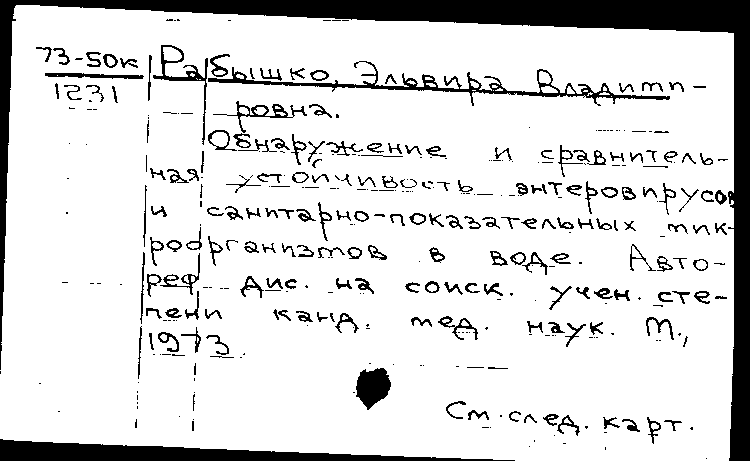 73-50к Рабышко, Эльвира Владими-
1231 ровна.
Обнаружение и сравнитель-
ная устойчивость энтеровирусов
и санитарно-показательных мик-
роорганизмов в воде. Авто-
реф. дис. на соиск. учен. сте-
пени канд. мед. наук. М.,
1973.
См. след. карт.